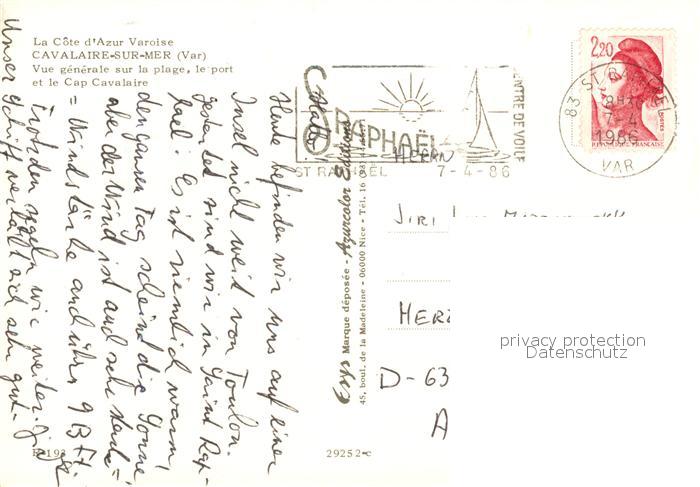 La Côte d'Azur Varoise
CAVALAIRE-SUR-MER (Var)
Vue générale sur la plage, le port
et le Cap Cavalaire
Heute befinden wir uns auf einer
Insel nicht weit von Toulon.
Gestartet sind wir in Saint Rap-
hael. Es ist ziemlich warm,
den ganzen Tag scheint die Sonne,
aber der Wind ist auch sehr stark =
= Windstärke auch über 9 Bft.
Trotzdem segeln wir weiter.
Unser Schiff verhält sich sehr gut.
29252-c
Marque déposée - Azurcolor
45, boul. de la Madeleine - 06000 Nice - Tél.
ST RAPHAËL
CENTRE DE VOILE
ST RAPHAËL 7-4-86
2,20
POSTES
REPUBLIQUE FRANÇAISE
83 ST RAPHAEL
7-4
1986
VAR
HERRN
JIRI
HERZ
D-63
A
privacy protection
Datenschutz